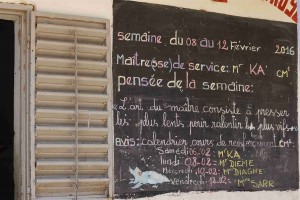 semaine du 08 au 12 Février 2016
Maître(sse) de service: Mr KA CM
pensée de la semaine:
"L'art du maître consiste à presser
les plus lents pour ralentir les plus vifs"
AVIS: calendrier cours de renforcement CM
Samedi 06-02: Mr KA
lundi 08-02: Mr DIEME
Mercredi 10-02: Mr DIAGHE
Vendredi 12-02: Mme SARR